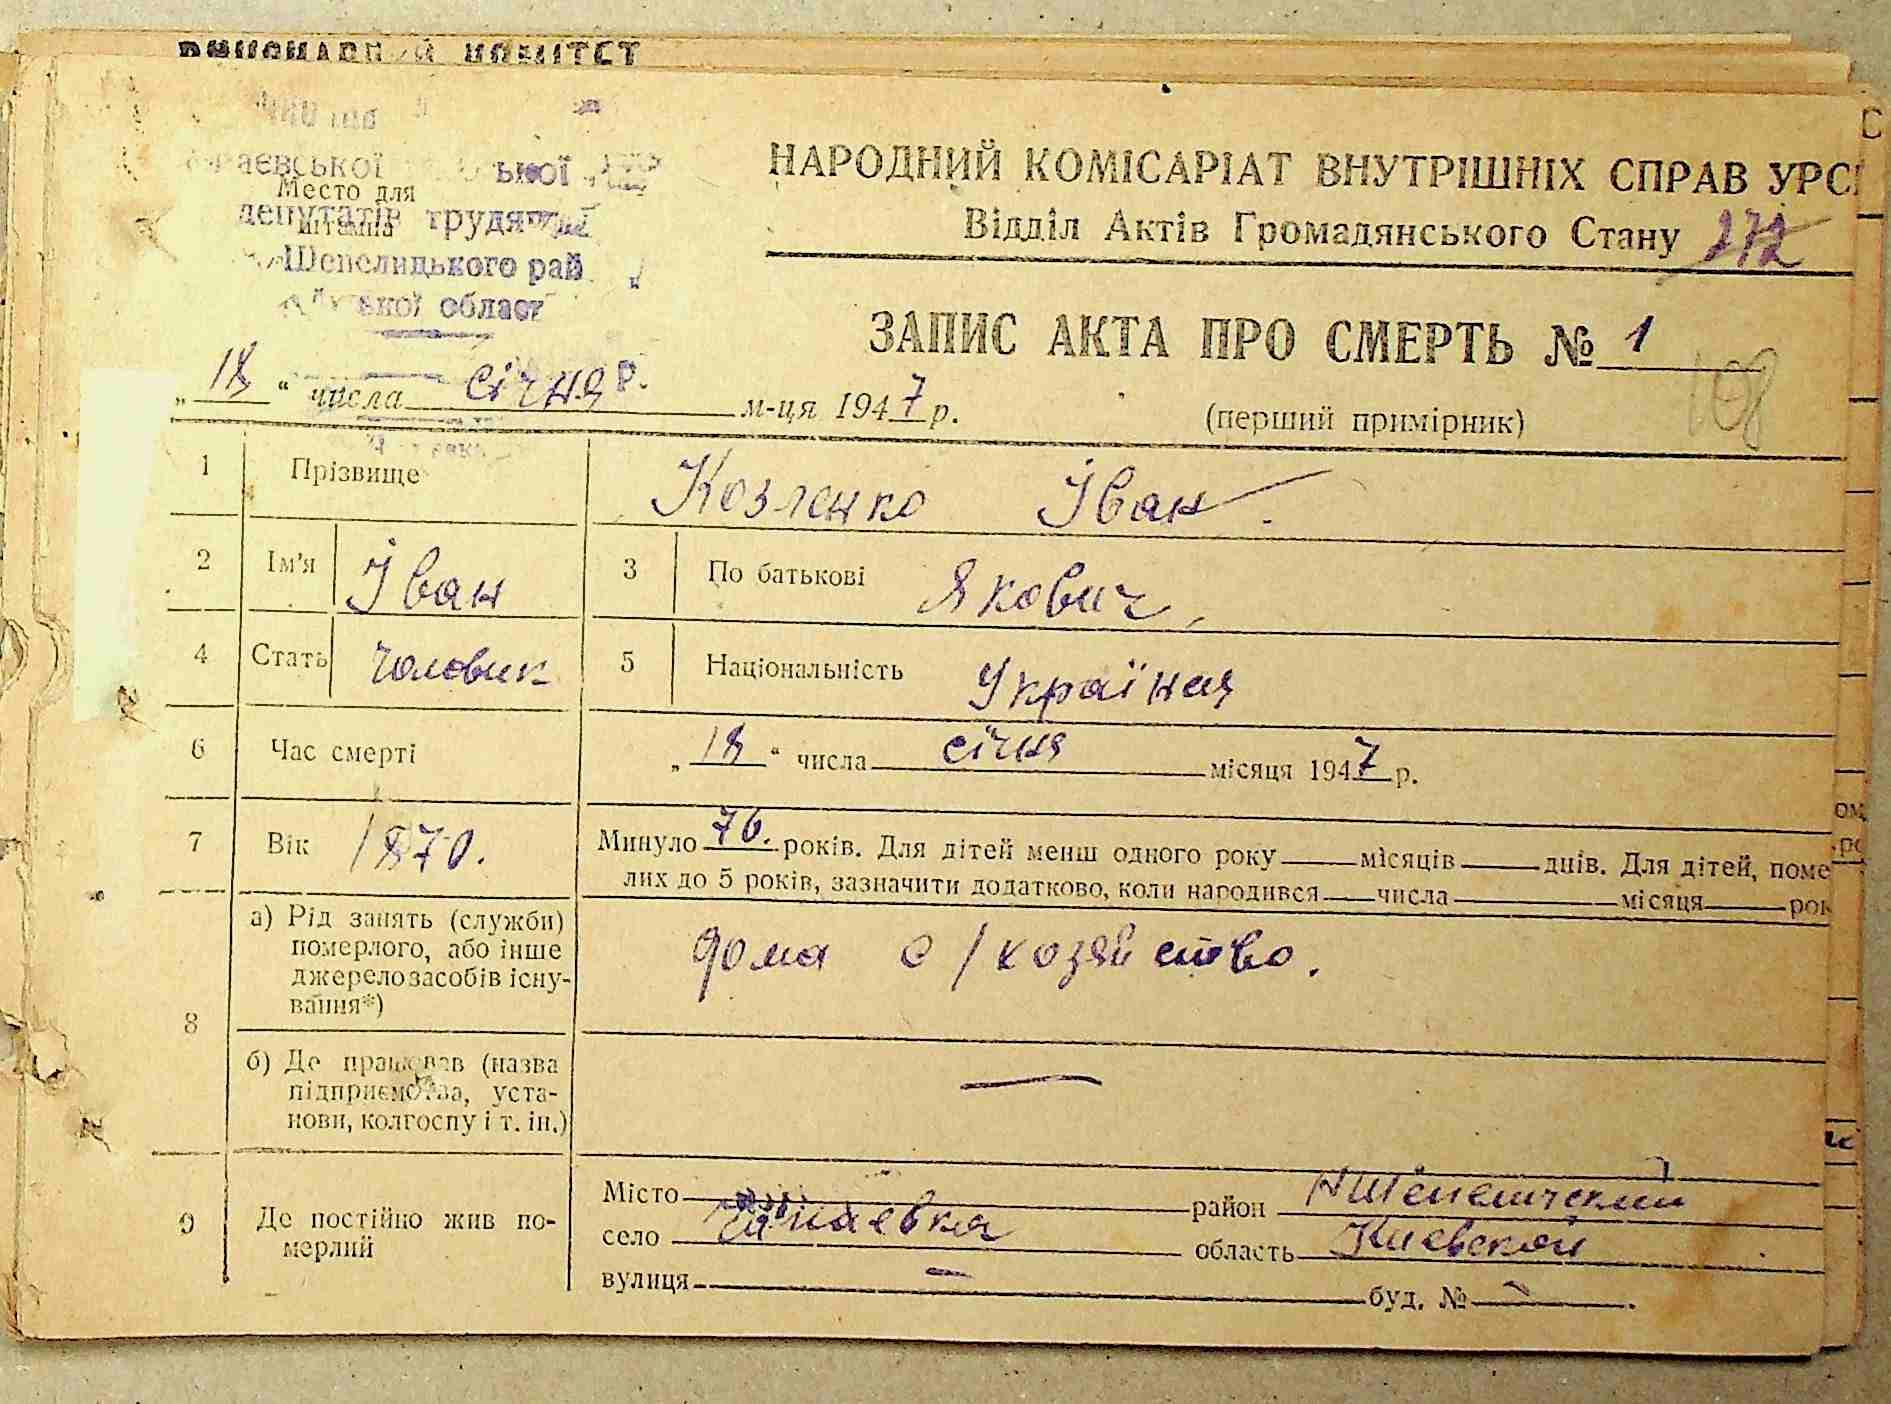 КОМІТЕТ
депутатів трудящ
Место для
штампа
Шепелицького рай
області
НАРОДНИЙ КОМІСАРІАТ ВНУТРІШНІХ СПРАВ УРС
Відділ Актів Громадянського Стану 272
ЗАПИС АКТА ПРО СМЕРТЬ № 1
108
„18“ числа січня м-ця 1947 р. (перший примірник)
1 Прізвище Козленко Іван
2 Ім'я Іван 3 По батькові Якович
4 Стать чоловик 5 Національність
6 Час смерті „18“ числа січня місяця 1947 р.
7 Вік 1870. Минуло 76. років. Для дітей менш одного року місяців днів. Для дітей, поме
лих до 5 років, зазначити додатково, коли народився числа місяця рок
8 а) Рід занять (служби)
померлого, або інше
джерело засобів існу-
вання*)
дома с/хозяйство.
б) Де працював (назва
підприємства, уста-
нови, колгоспу і т. ін.)
—
9 Де постійно жив по-
мерлий
Місто район
село Чапаевка область Киевской
вулиця — буд. № —.